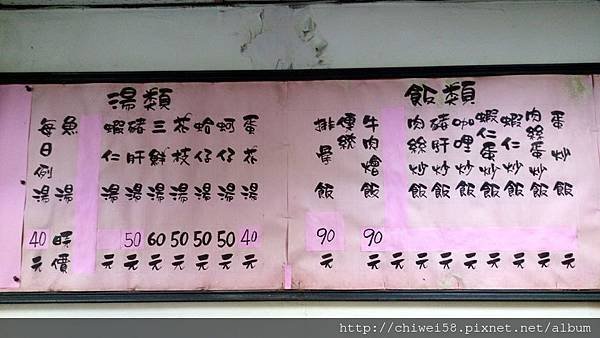 飯類
蛋炒飯 元
肉絲蛋炒飯 元
蝦仁炒飯 元
蝦仁蛋炒飯 元
咖哩炒飯 元
豬肝炒飯 元
肉絲炒飯 元
牛肉燴飯 90元
傳統排骨飯 90元
湯類
蛋花湯 40元
蚵仔湯 50元
蛤仔湯 50元
花枝湯 50元
三鮮湯 60元
豬肝湯 50元
蝦仁湯 元
魚湯 時價
每日例湯 40元
http://chiwei58.pixnet.net/album